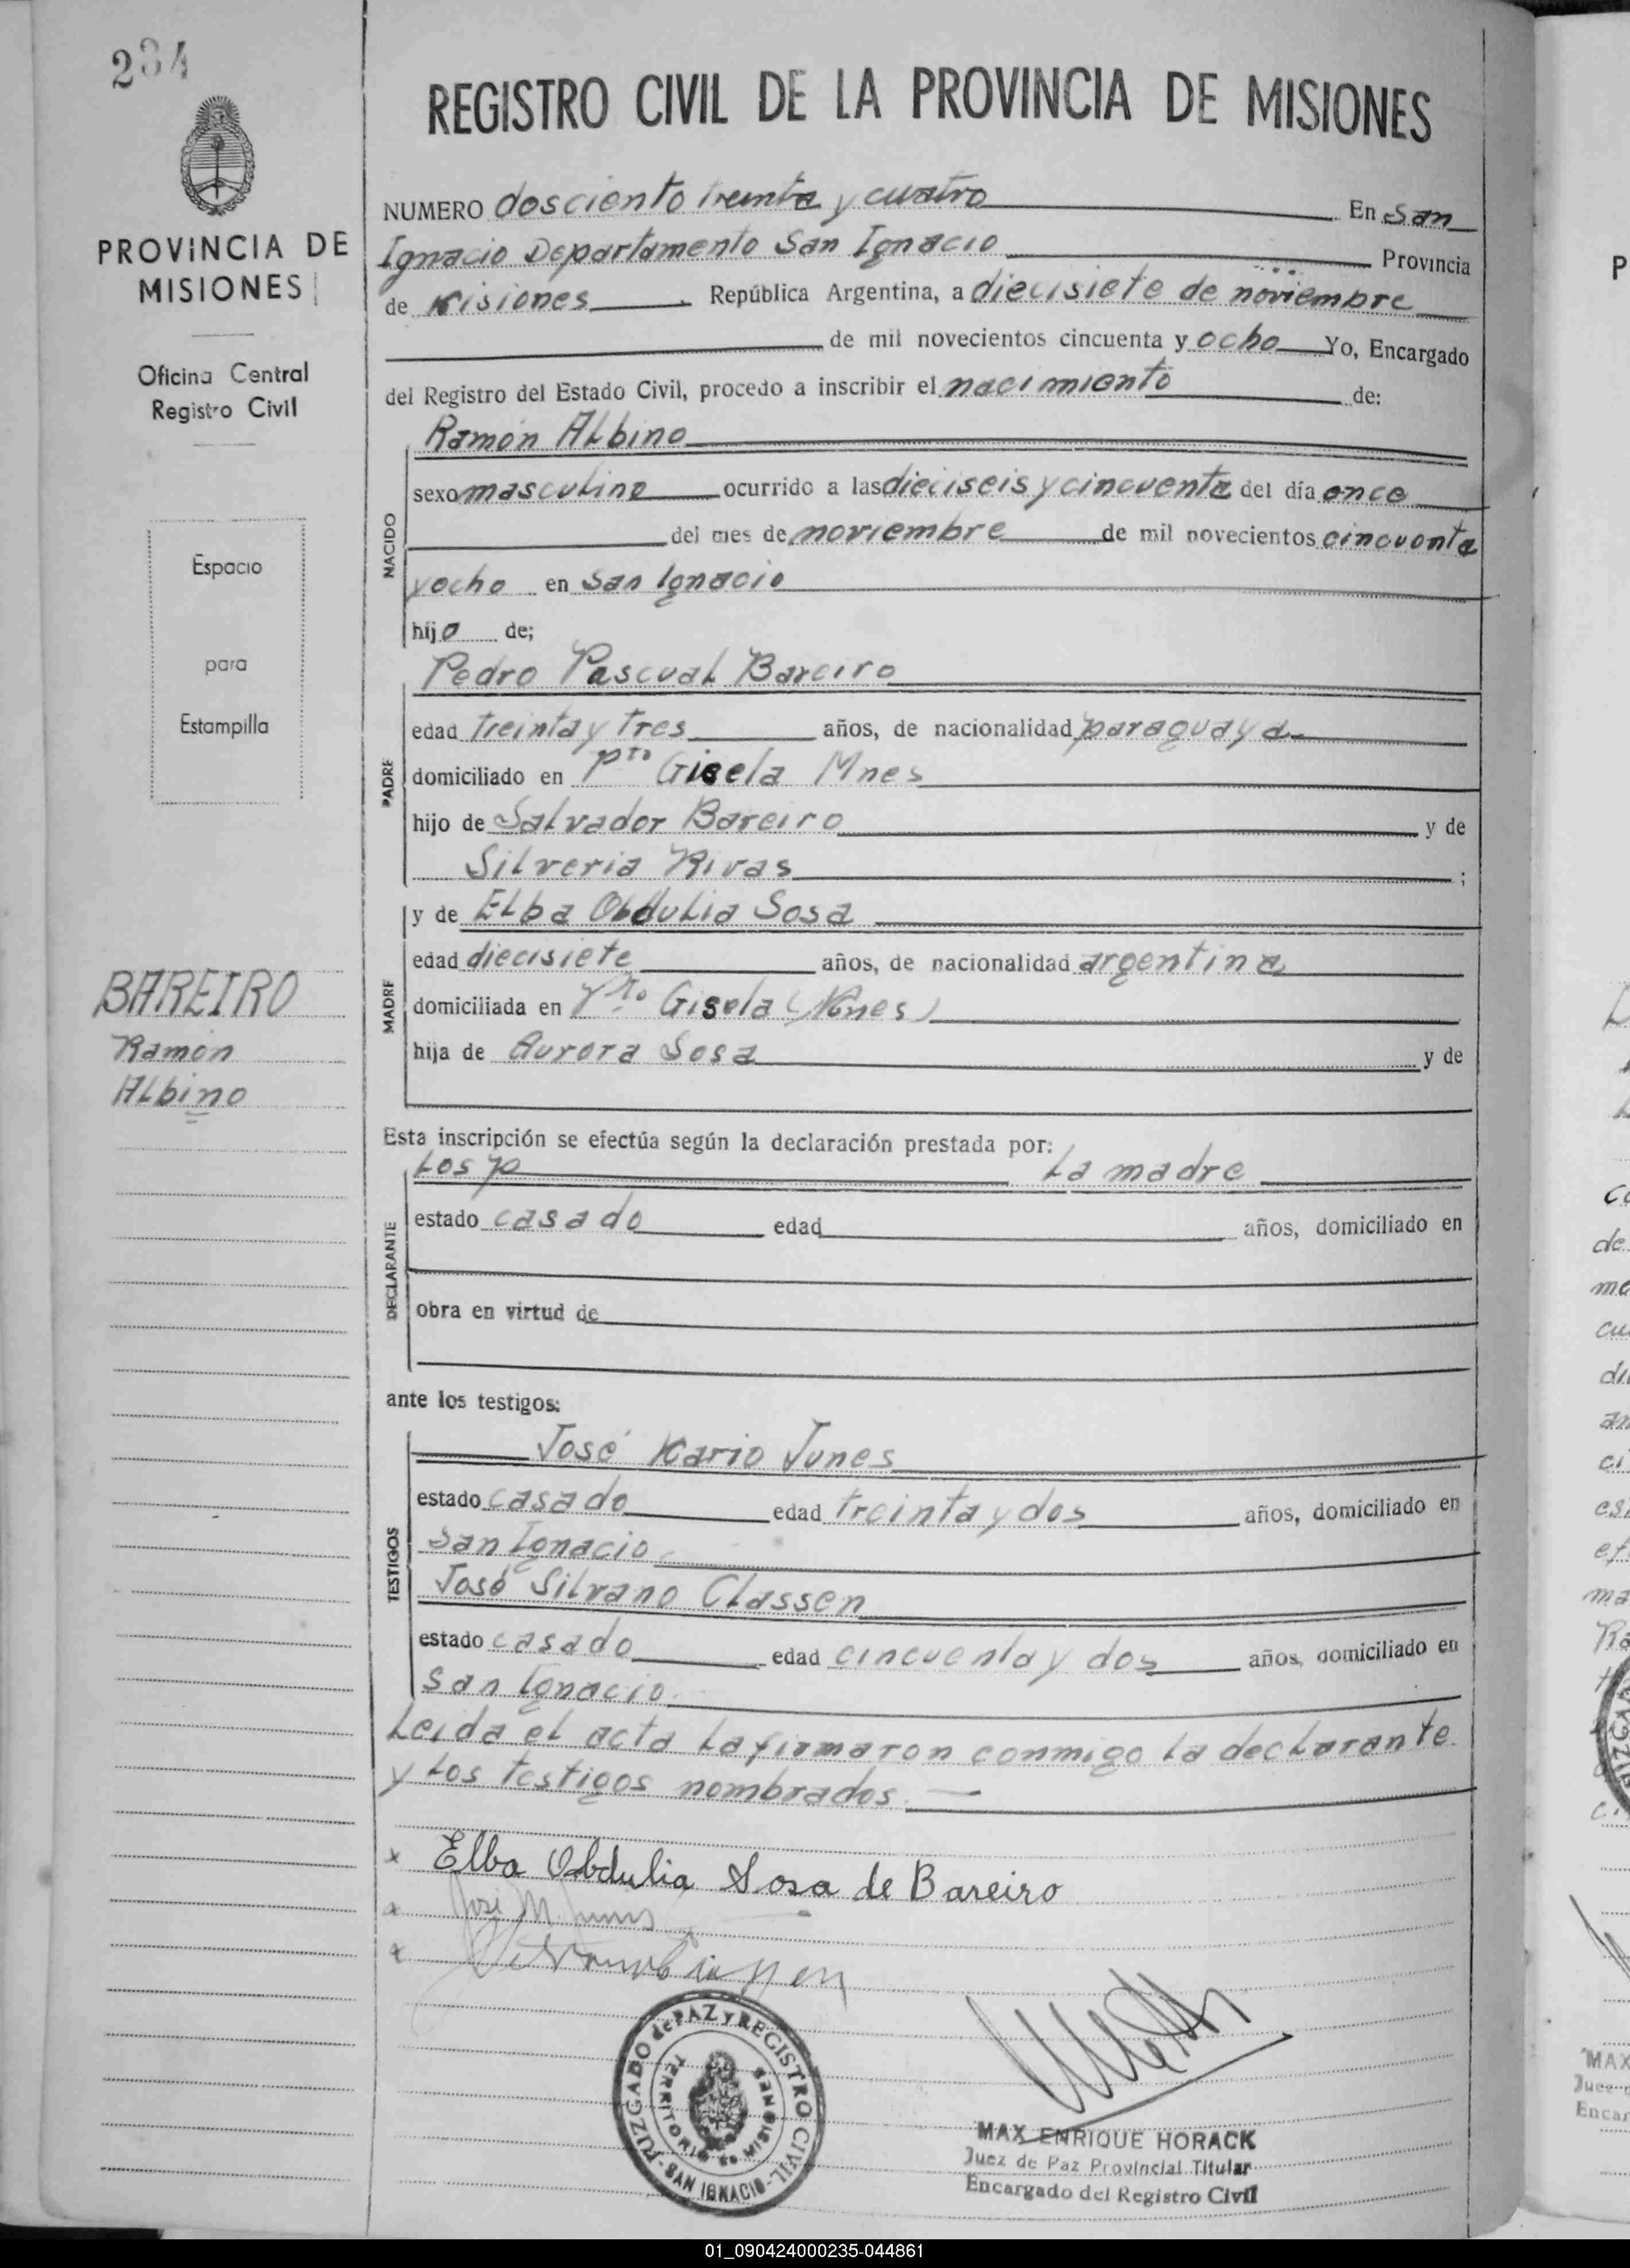 234
PROVINCIA DE
MISIONES
Oficina Central
Registro Civil
Espacio
para
Estampilla
BAREIRO
Ramón
Albino
REGISTRO CIVIL DE LA PROVINCIA DE MISIONES
NUMERO dosciento treinta y cuatro En San
Ignacio Departamento San Ignacio Provincia
de Misiones República Argentina, a diecisiete de noviembre
de mil novecientos cincuenta y ocho Yo, Encargado
del Registro del Estado Civil, procedo a inscribir el nacimiento de:
NACIDO
Ramón Albino
sexo masculino ocurrido a las dieciseis y cincuenta del día once
del mes de noviembre de mil novecientos cincuenta
y ocho en San Ignacio
hijo de;
PADRE
Pedro Pascual Bareiro
edad treinta y tres años, de nacionalidad paraguaya
domiciliado en Pto Gisela Mnes
hijo de Salvador Bareiro y de
Silveria Rivas ;
MADRE
y de Elba Obdulia Sosa
edad diecisiete años, de nacionalidad argentina
domiciliada en Pto Gisela (Mnes)
hija de Aurora Sosa y de
Esta inscripción se efectúa según la declaración prestada por:
DECLARANTE
Los p La madre
estado casado edad años, domiciliado en
obra en virtud de
ante los testigos:
TESTIGOS
José Mario Junes
estado casado edad treinta y dos años, domiciliado en
San Ignacio
José Silvano Classen
estado casado edad cincuenta y dos años, domiciliado en
San Ignacio
Leida el acta la firmaron conmigo la declarante
y los testigos nombrados.
x Elba Obdulia Sosa de Bareiro
x José M Junes
x
JUZGADO de PAZ Y REGISTRO CIVIL
TERRITORIO de MISIONES
- SAN IGNACIO -
MAX ENRIQUE HORACK
Juez de Paz Provincial Titular
Encargado del Registro Civil
P
co
de
ma
cu
ci
est
ef
ma
MAX
Juez
Encar
01_090424000235-044861